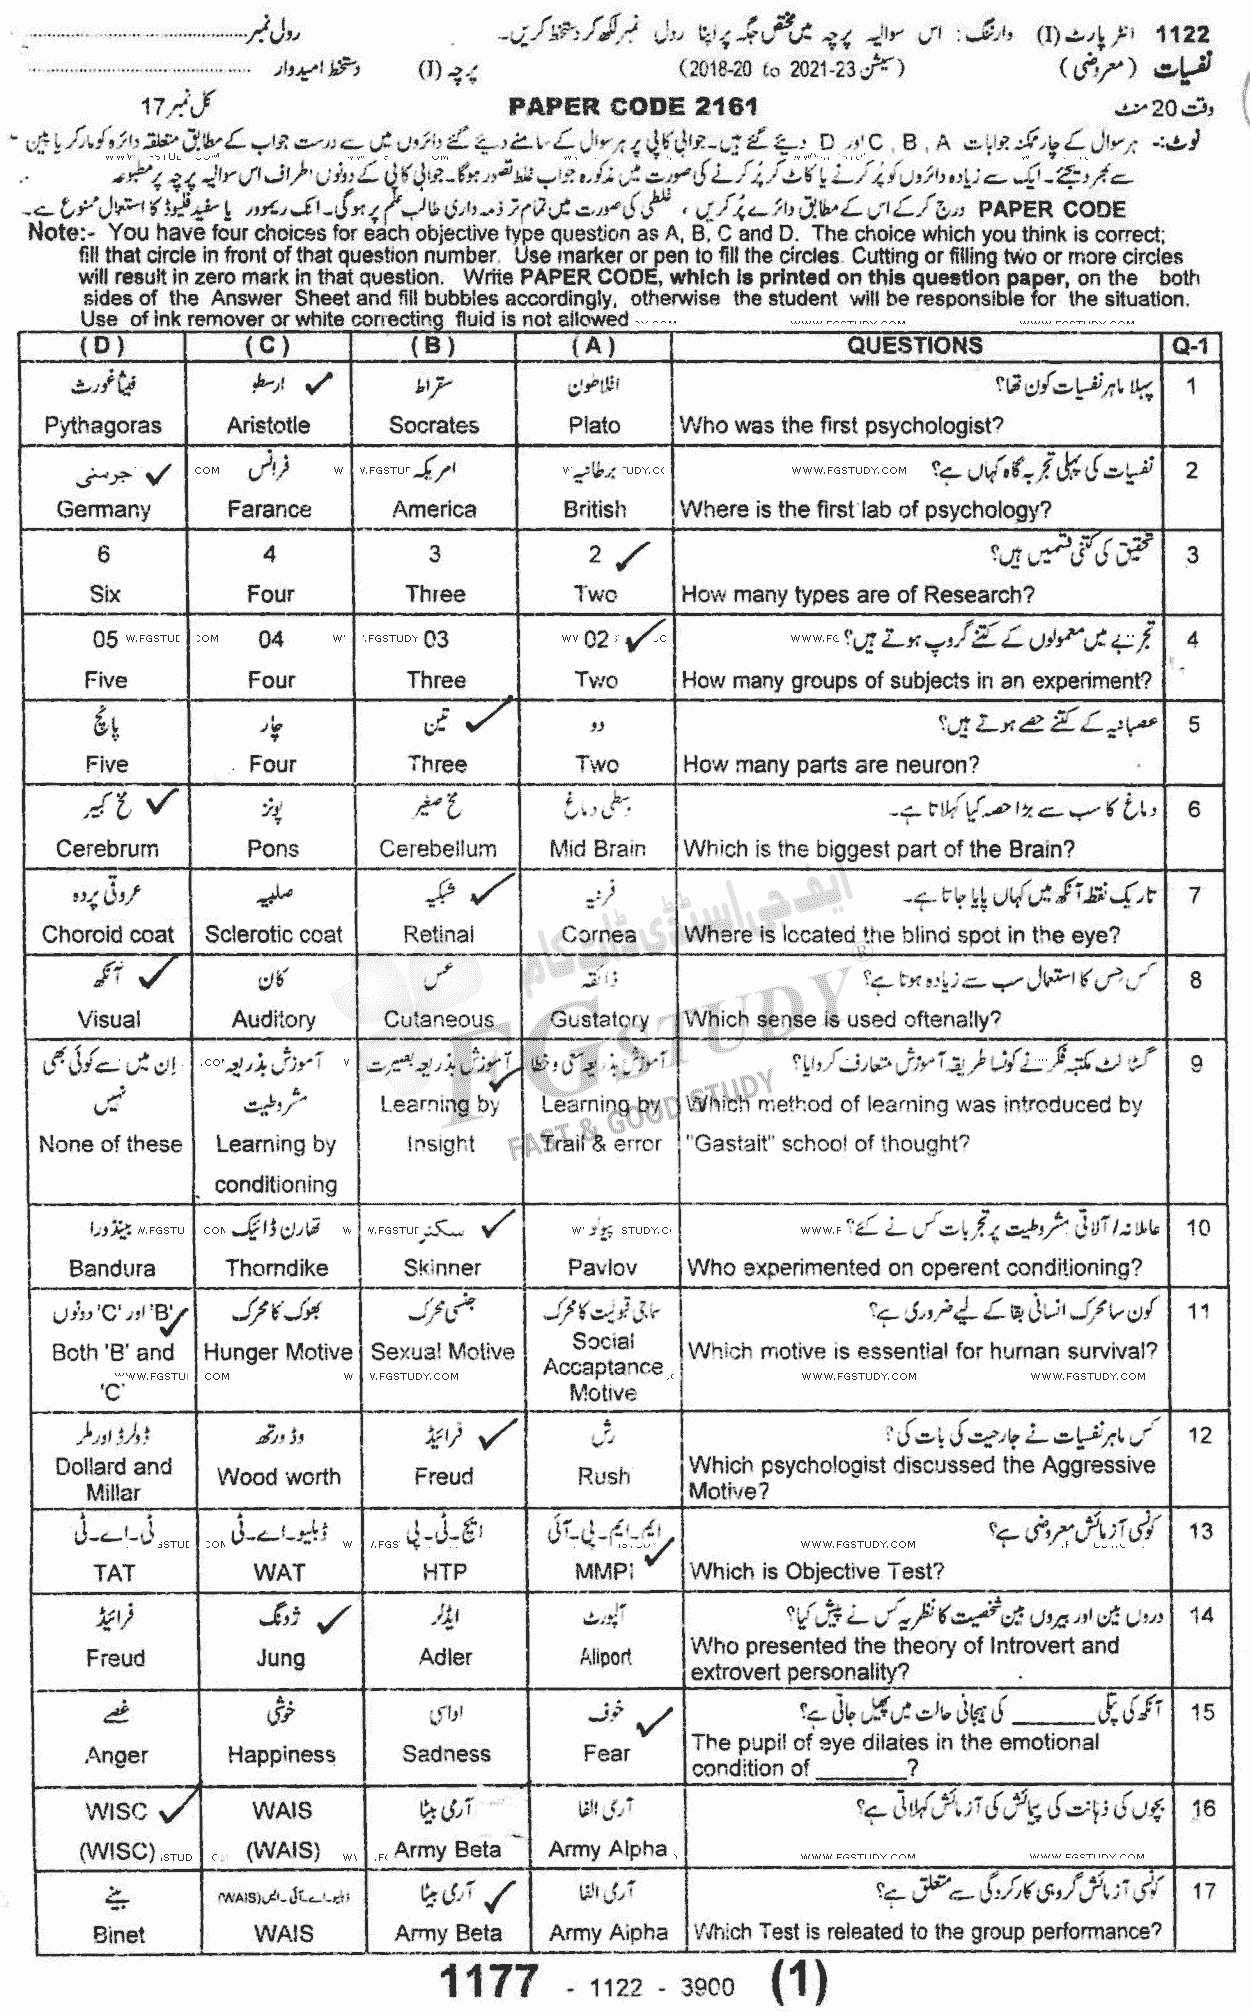 1122 انٹر پارٹ (I) وارننگ: اس سوالیہ پرچہ میں مختص جگہ پر اپنا رول نمبر لکھ کر دستخط کریں۔ رول نمبر
نفسیات (معروضی) (سیشن 2018-20 to 2021-23) پرچہ (I) دستخط امیدوار
وقت 20 منٹ PAPER CODE 2161 کل نمبر 17
نوٹ:- ہر سوال کے چار ممکنہ جوابات A , B , C اور D دیئے گئے ہیں۔ جوابی کاپی پر ہر سوال کے سامنے دیئے گئے دائروں میں سے درست جواب کے مطابق متعلقہ دائرہ کو مارکر یا پین
سے بھر دیجئے۔ ایک سے زیادہ دائروں کو پُر کرنے یا کاٹ کر پُر کرنے کی صورت میں مذکورہ جواب غلط تصور ہوگا۔ جوابی کاپی کے دونوں اطراف اس سوالیہ پرچہ پر مطبوعہ
PAPER CODE درج کر کے اس کے مطابق دائرے پُر کریں، غلطی کی صورت میں تمام تر ذمہ داری طالب علم پر ہوگی۔ انک ریموور یا سفید فلیوڈ کا استعمال ممنوع ہے۔
Note:- You have four choices for each objective type question as A, B, C and D. The choice which you think is correct;
fill that circle in front of that question number. Use marker or pen to fill the circles. Cutting or filling two or more circles
will result in zero mark in that question. Write PAPER CODE, which is printed on this question paper, on the both
sides of the Answer Sheet and fill bubbles accordingly, otherwise the student will be responsible for the situation.
Use of ink remover or white correcting fluid is not allowed
(D) (C) (B) (A) QUESTIONS Q-1
فیثاغورث ارسطو سقراط افلاطون پہلا ماہر نفسیات کون تھا؟ 1
Pythagoras Aristotle Socrates Plato Who was the first psychologist?
جرمنی فرانس امریکہ برطانیہ نفسیات کی پہلی تجربہ گاہ کہاں ہے؟ 2
Germany Farance America British Where is the first lab of psychology?
6 4 3 2 تحقیق کی کتنی قسمیں ہیں؟ 3
Six Four Three Two How many types are of Research?
05 04 03 02 تجربے میں معمولوں کے کتنے گروپ ہوتے ہیں؟ 4
Five Four Three Two How many groups of subjects in an experiment?
پانچ چار تین دو عصبانیہ کے کتنے حصے ہوتے ہیں؟ 5
Five Four Three Two How many parts are neuron?
مخ کبیر پونز مخ صغیر وسطی دماغ دماغ کا سب سے بڑا حصہ کیا کہلاتا ہے۔ 6
Cerebrum Pons Cerebellum Mid Brain Which is the biggest part of the Brain?
عروقی پردہ صلبیہ شبکیہ قرنیہ تاریک نقطہ آنکھ میں کہاں پایا جاتا ہے۔ 7
Choroid coat Sclerotic coat Retinal Cornea Where is located the blind spot in the eye?
آنکھ کان لمس ذائقہ کس حس کا استعمال سب سے زیادہ ہوتا ہے؟ 8
Visual Auditory Cutaneous Gustatory Which sense is used oftenally?
ان میں سے کوئی بھی آموزش بذریعہ آموزش بذریعہ بصیرت آموزش بذریعہ سعی و خطا گسٹالٹ مکتبہ فکر نے کونسا طریقہ آموزش متعارف کروایا؟ 9
نہیں مشروطیت Learning by Learning by Which method of learning was introduced by
None of these Learning by Insight Trail & error "Gastalt" school of thought?
conditioning
بینڈورا تھارن ڈائیک سکنر پیولو عاملانہ/آلاتی مشروطیت پر تجربات کس نے کئے؟ 10
Bandura Thorndike Skinner Pavlov Who experimented on operent conditioning?
'B' اور 'C' دونوں بھوک کا محرک جنسی محرک سماجی قبولیت کا محرک کون سا محرک انسانی بقا کے لیے ضروری ہے؟ 11
Both 'B' and 'C' Hunger Motive Sexual Motive Social Accaptance Motive Which motive is essential for human survival?
ڈولرڈ اور ملر وڈورتھ فرائیڈ رش کس ماہر نفسیات نے جارحیت کی بات کی؟ 12
Dollard and Millar Wood worth Freud Rush Which psychologist discussed the Aggressive Motive?
ٹی-اے-ٹی ڈبلیو-اے-ٹی ایچ-ٹی-پی ایم-ایم-پی-آئی کونسی آزمائش معروضی ہے؟ 13
TAT WAT HTP MMPI Which is Objective Test?
فرائیڈ ژونگ ایڈلر آلپورٹ دروں بین اور بیروں بین شخصیت کا نظریہ کس نے پیش کیا؟ 14
Freud Jung Adler Allport Who presented the theory of Introvert and extrovert personality?
غصے خوشی اداسی خوف آنکھ کی پتلی ______ کی ہیجانی حالت میں پھیل جاتی ہے؟ 15
Anger Happiness Sadness Fear The pupil of eye dilates in the emotional condition of ______?
WISC WAIS آرمی بیٹا آرمی الفا بچوں کی ذہانت کی پیمائش کی آزمائش کہلاتی ہے؟ 16
(WISC) (WAIS) Army Beta Army Alpha
بینے ڈبلیو-اے-آئی-ایس(WAIS) آرمی بیٹا آرمی الفا کونسی آزمائش گروہی کارکردگی سے متعلق ہے؟ 17
Binet WAIS Army Beta Army Alpha Which Test is releated to the group performance?
1177 - 1122 - 3900 (1)
ایف جی اسٹڈی ڈاٹ کام
FGSTUDY ®
FAST & GOOD STUDY
WWW.FGSTUDY.COM